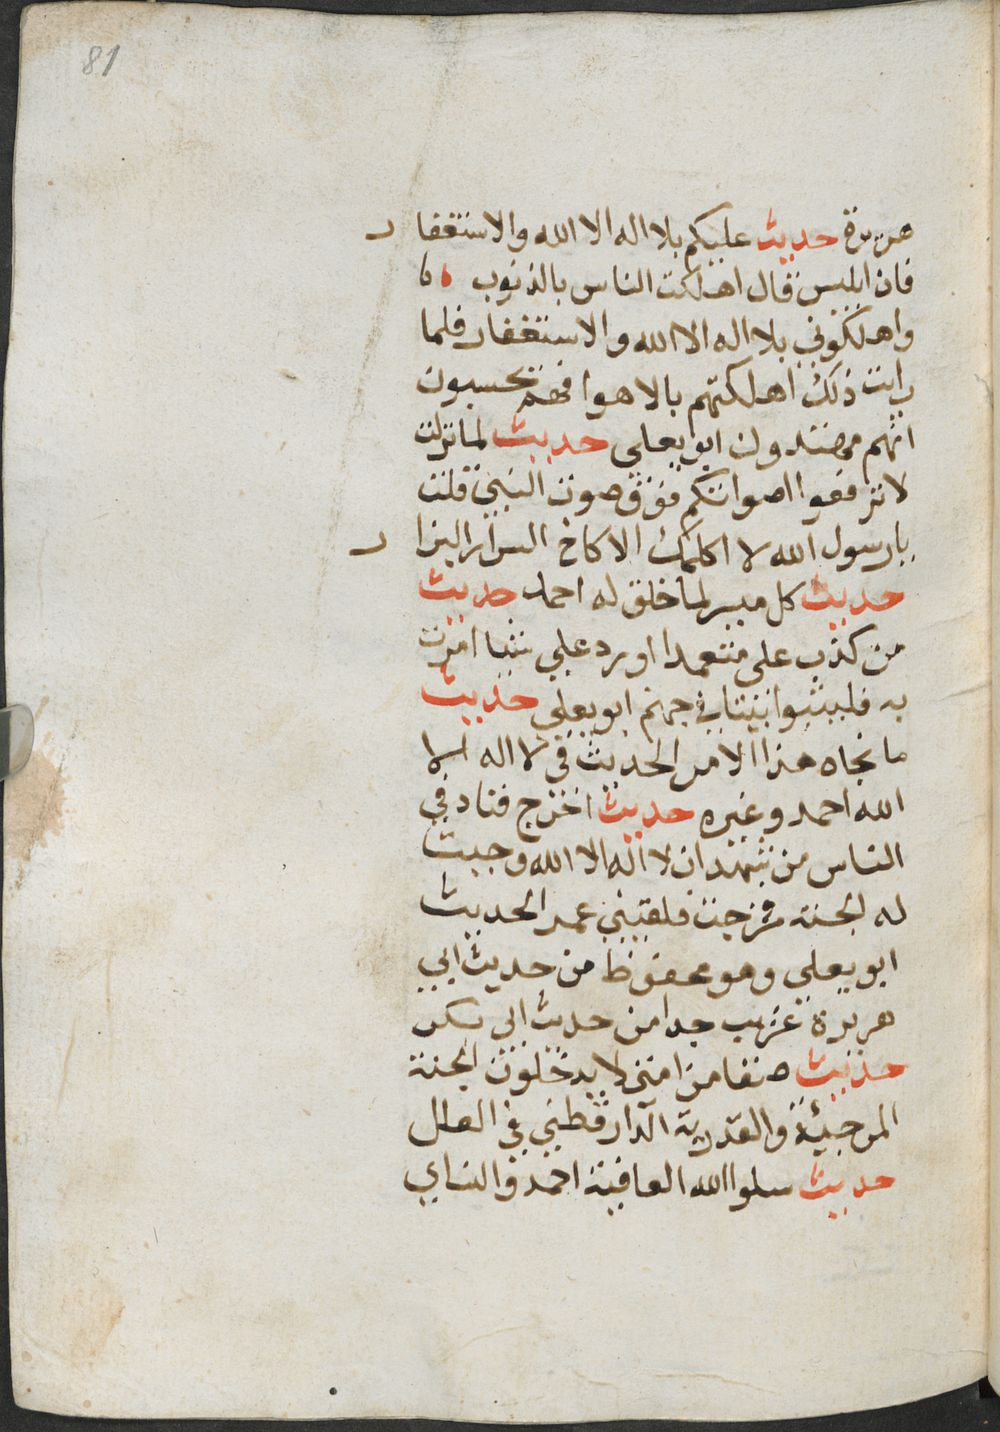 81
هريرة حديث عليكم بلا اله الا الله والاستغفار
فان ابليس قال اهلكت الناس بالذنوب
واهلكوني بلا اله الا الله والاستغفار فلما
رايت ذلك اهلكتهم بالاهوا فهم يحسبون
انهم مهتدون ابو يعلى حديث لما نزلت
لا ترفعوا اصواتكم فوق صوت النبي قلت
يا رسول الله لا اكلمك الا كاخ السرار البزار
حديث كل ميسر لما خلق له احمد حديث
من كذب على متعمدا او رد علي شيا امرت
به فليتبوا بيتا في جهنم ابو يعلى حديث
ما نجاه هذا الامر الحديث في لا اله الا
الله احمد وغيره حديث اخرج فناد في
الناس من شهد ان لا اله الا الله وجبت
له الجنة فخرجت فلقيني عمر الحديث
ابو يعلى وهو محفوظ من حديث ابي
هريرة غريب جدا من حديث ابي بكر
حديث صنفا من امتى لا يدخلون الجنة
المرجئة والقدرية الدارقطني في العلل
حديث سلوا الله العافية احمد والنساي